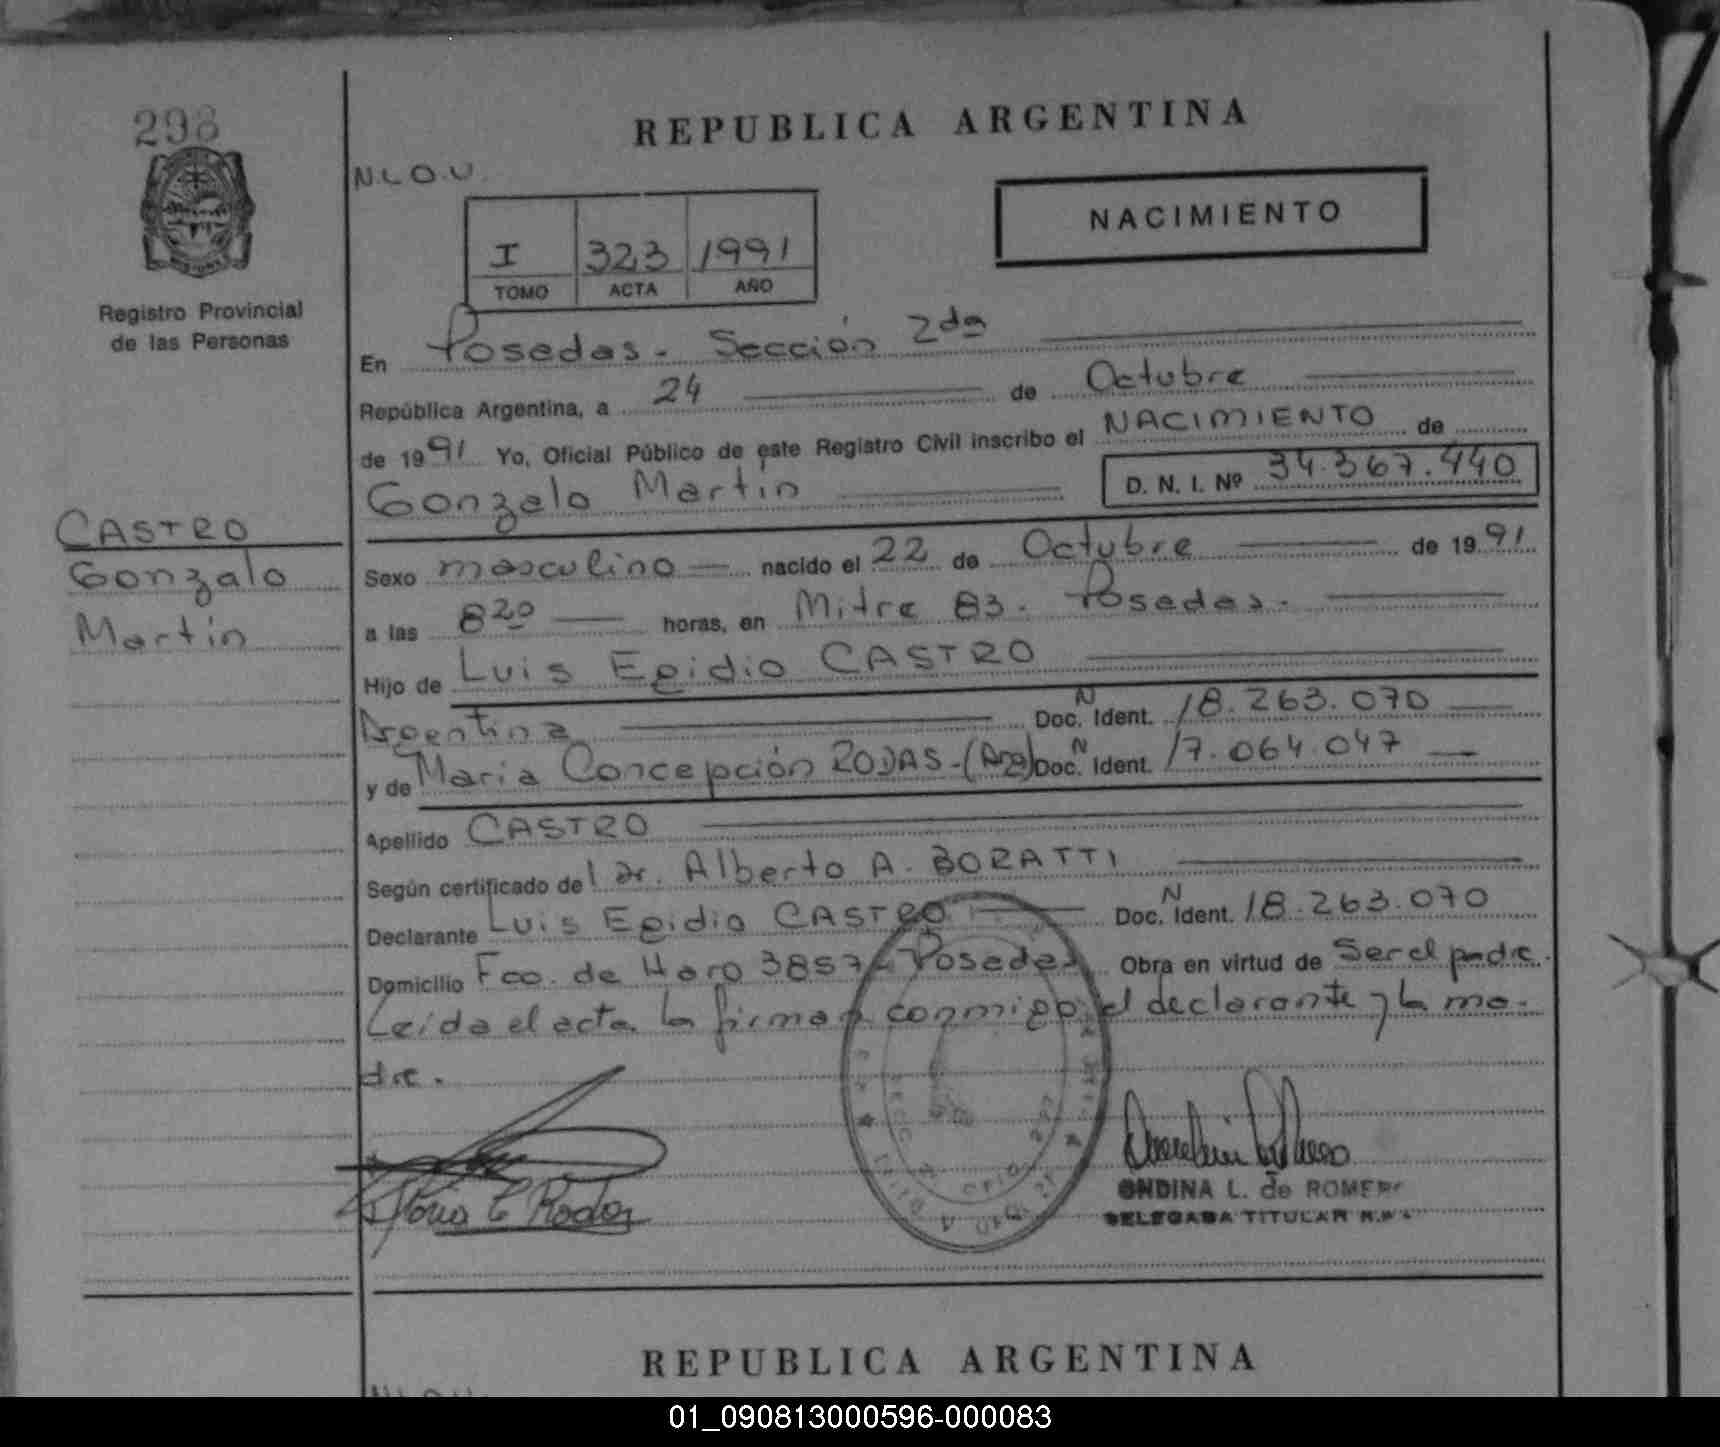 298
REPUBLICA ARGENTINA
N.L.O.U.
NACIMIENTO
I 323 1991
TOMO ACTA AÑO
Registro Provincial
de las Personas
En Posadas - Sección 2da
República Argentina, a 24 de Octubre
de 1991 Yo, Oficial Público de este Registro Civil inscribo el NACIMIENTO de
Gonzalo Martin D. N. I. Nº 34.367.440
CASTRO
Gonzalo
Martin
Sexo masculino nacido el 22 de Octubre de 1991
a las 8 20 horas, en Mitre 83. Posadas.
Hijo de Luis Egidio CASTRO
Argentina Doc. N Ident. 18.263.070
y de Maria Concepción RODAS - (Arg) Doc. N Ident. 17.064.047
Apellido CASTRO
Según certificado del Dr. Alberto A. BORATTI
Declarante Luis Egidio CASTRO Doc. N Ident. 18.263.070
Domicilio Fco. de Haro 3857 - Posadas Obra en virtud de Ser el padre.
Leida el acta la firman conmigo el declarante y la ma-
dre.
Maria C Rodas
ONDINA L. de ROMERO
DELEGADA TITULAR
REPUBLICA ARGENTINA
N.L.O.U.
01_090813000596-000083